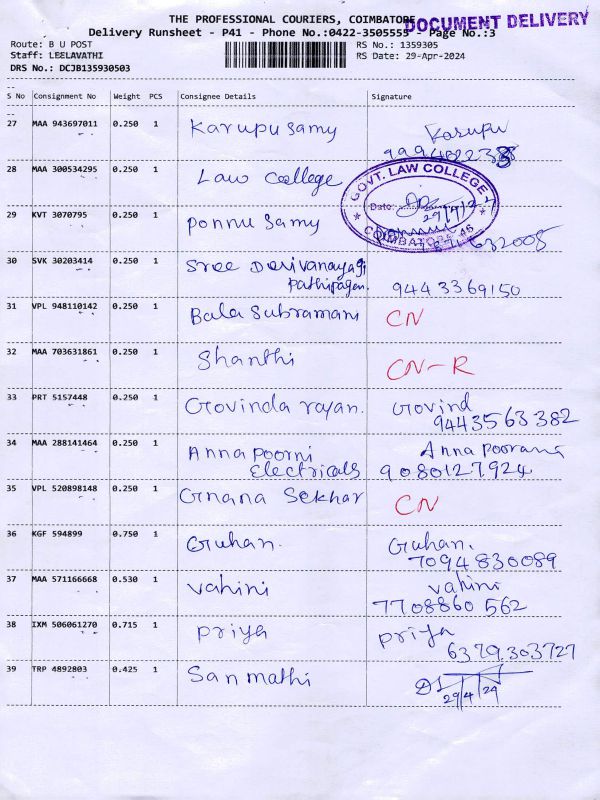 THE PROFESSIONAL COURIERS, COIMBATORE
DOCUMENT DELIVERY
Delivery Runsheet - P41 - Phone No.:0422-3505555 - Page No.:3
Route: B U POST
RS No.: 1359305
Staff: LEELAVATHI
RS Date: 29-Apr-2024
DRS No.: DCJB135930503
S No Consignment No Weight PCS Consignee Details Signature
27 MAA 943697011 0.250 1 Karupusamy Karupu
28 MAA 300534295 0.250 1 Law College
GOVT. LAW COLLEGE
Date:
COIMBATORE-46
29 KVT 3070795 0.250 1 Ponnusamy
30 SVK 30203414 0.250 1 Sree
9443369150
31 VPL 948110142 0.250 1 Bala Subramani CN
32 MAA 703631861 0.250 1 Shanthi CN-R
33 PRT 5157448 0.250 1 Govinda rajan. Govind
9443563382
34 MAA 288141464 0.250 1 Annapoorni Annapoorani
Electricals 9080127924
35 VPL 520898148 0.250 1 Gnana Sekhar CN
36 KGF 594899 0.750 1 Guhan. Guhan.
7094830089
37 MAA 571166668 0.530 1 Vahini Vahini
7708860562
38 IXM 506061270 0.715 1 Priya Priya
6379303727
39 TRP 4892803 0.425 1 Sanmathi
29/4/24